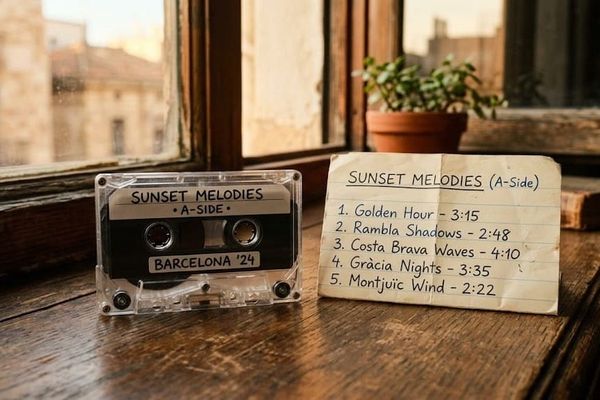 SUNSET MELODIES
• A-SIDE •
BARCELONA '24
SUNSET MELODIES (A-Side)
1. Golden Hour - 3:15
2. Rambla Shadows - 2:48
3. Costa Brava Waves - 4:10
4. Gràcia Nights - 3:35
5. Montjuïc Wind - 2:22